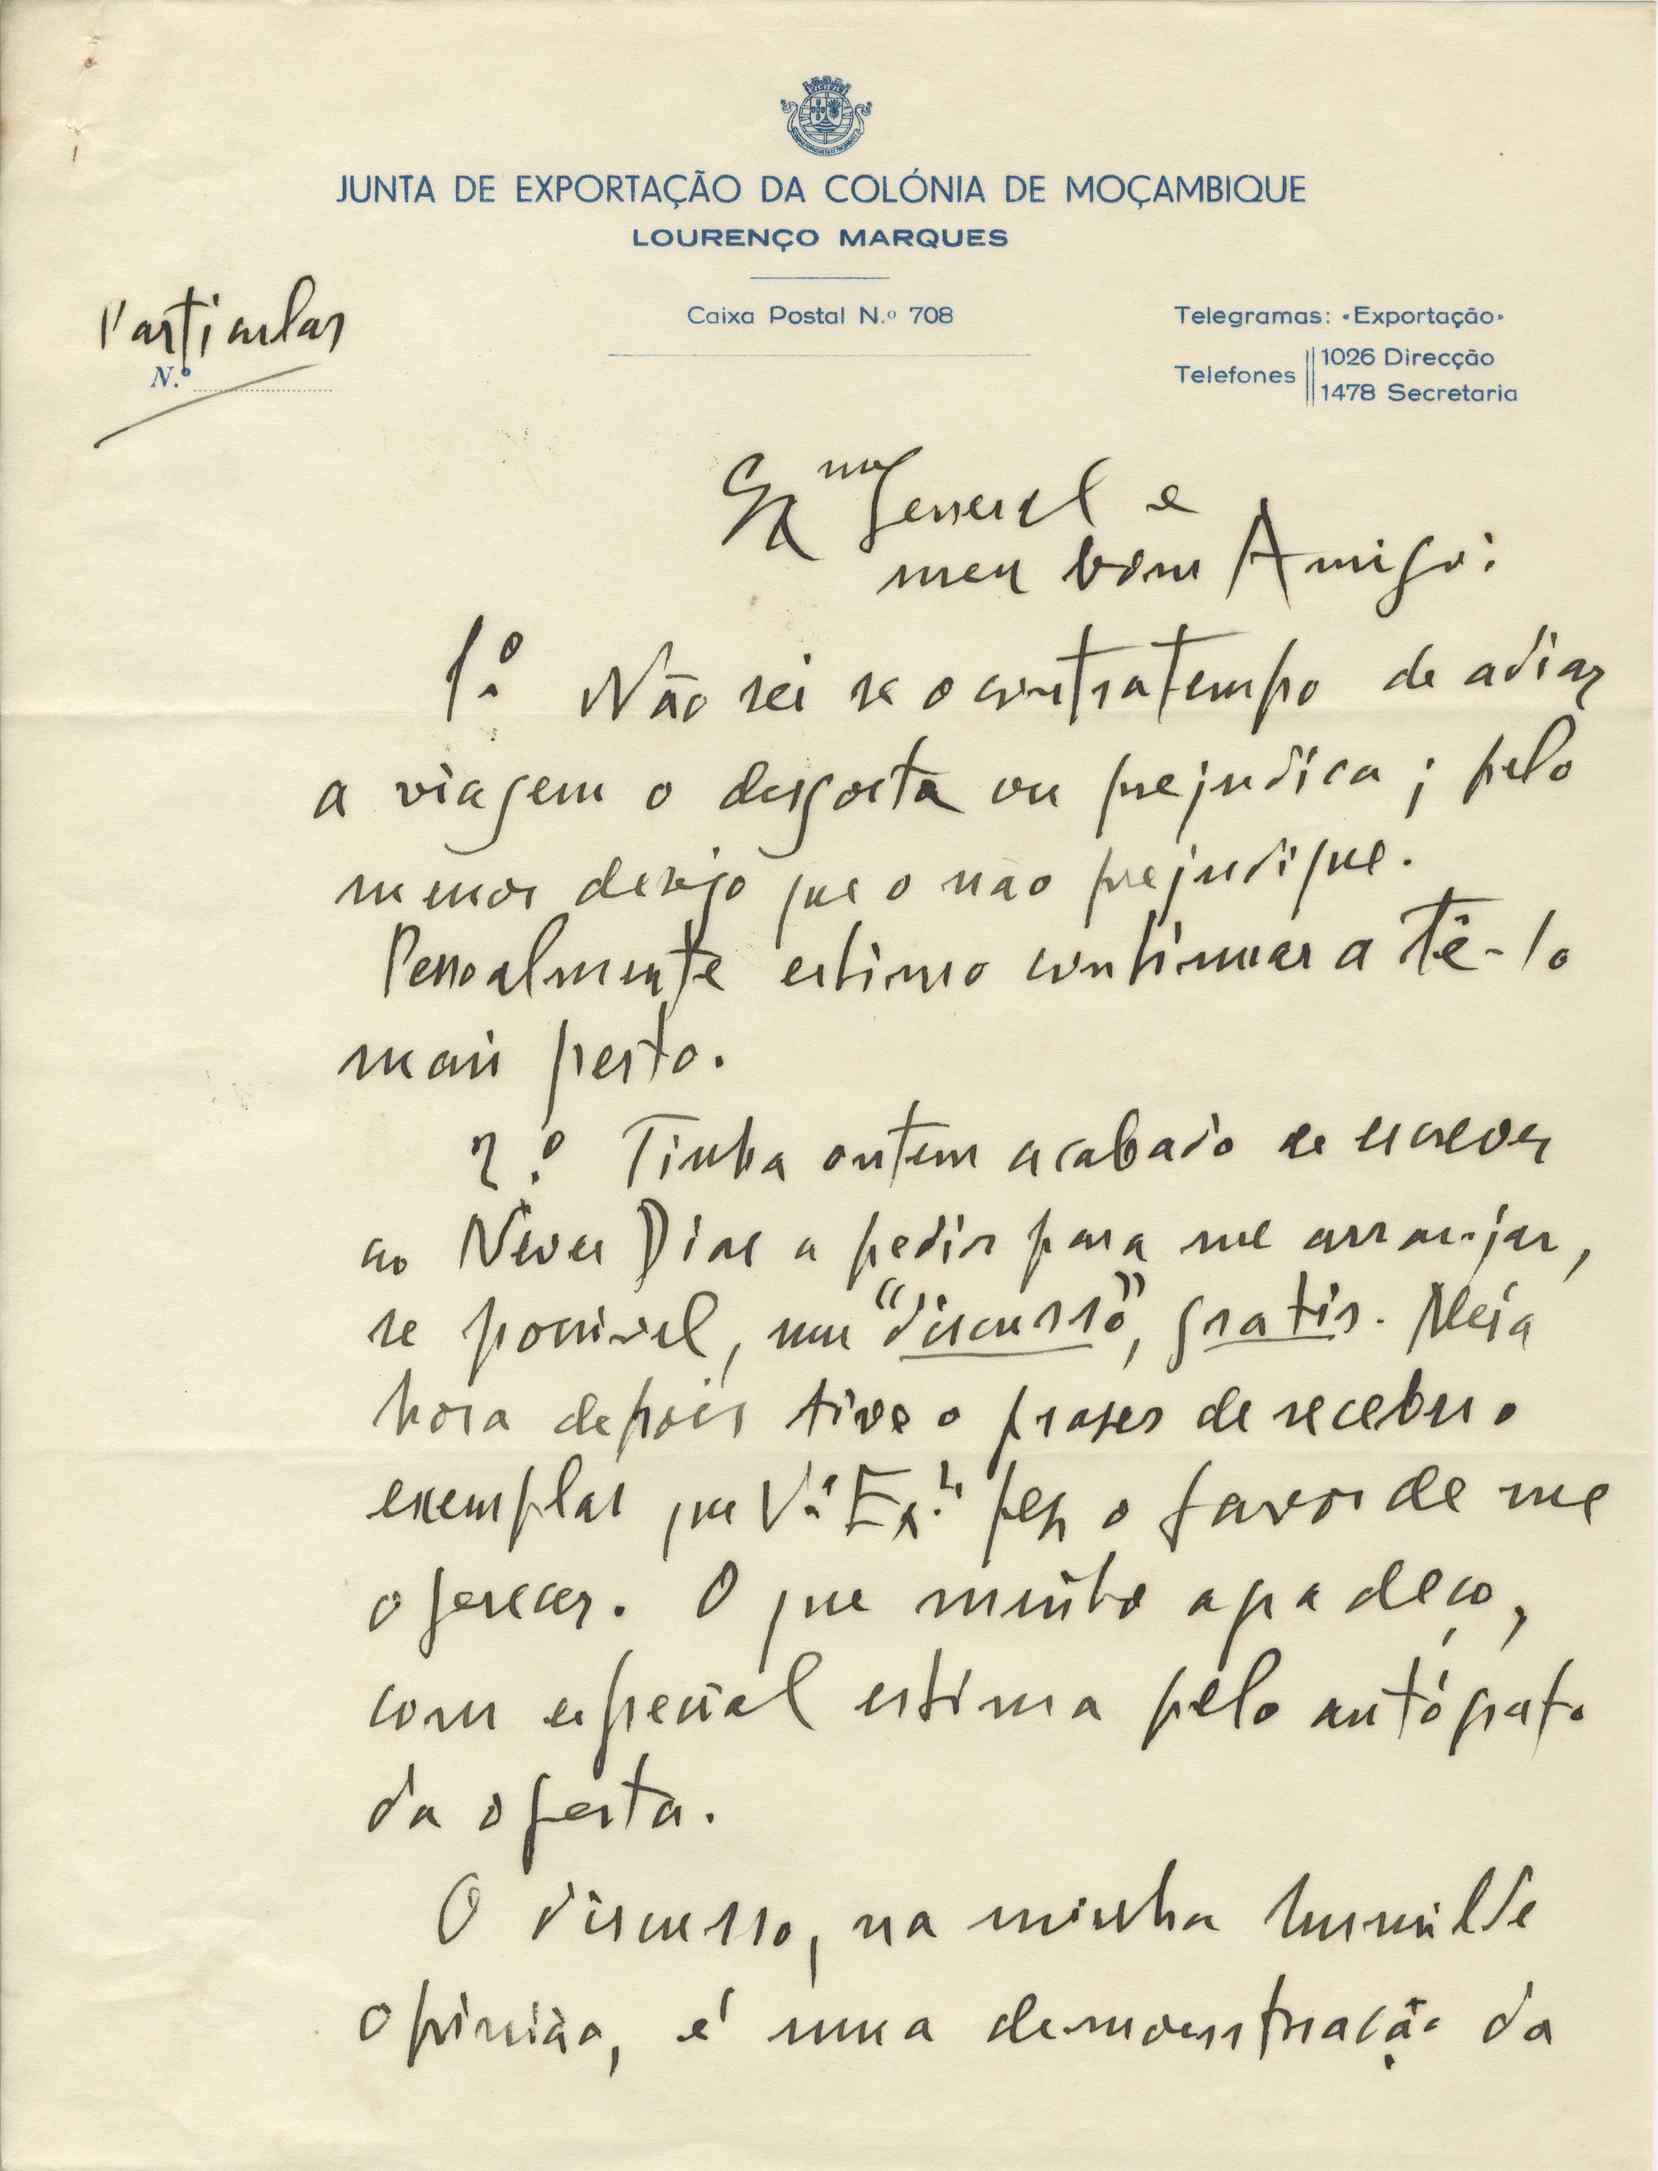 JUNTA DE EXPORTAÇÃO DA COLÓNIA DE MOÇAMBIQUE
LOURENÇO MARQUES
Caixa Postal N.º 708
Telegramas: «Exportação»
Telefones 1026 Direcção
1478 Secretaria
Particular
N.º
Exmo General e
meu bom Amigo:
1.º Não sei se o contratempo de adiar
a viagem o desgosta ou prejudica; pelo
menos desejo que o não prejudique.
Pessoalmente estimo continuar a tê-lo
mais perto.
2.º Tinha ontem acabado de escrever
ao Neves Dias a pedir para me arranjar,
se possivel, um "discurso", gratis. Meia
hora depois tive o prazer de receber o
exemplar que V.ª Ex.ª fez o favor de me
oferecer. O que muito agradeço,
com especial estima pelo autógrafo
da oferta.
O discurso, na minha humilde
opinião, é uma demonstração da